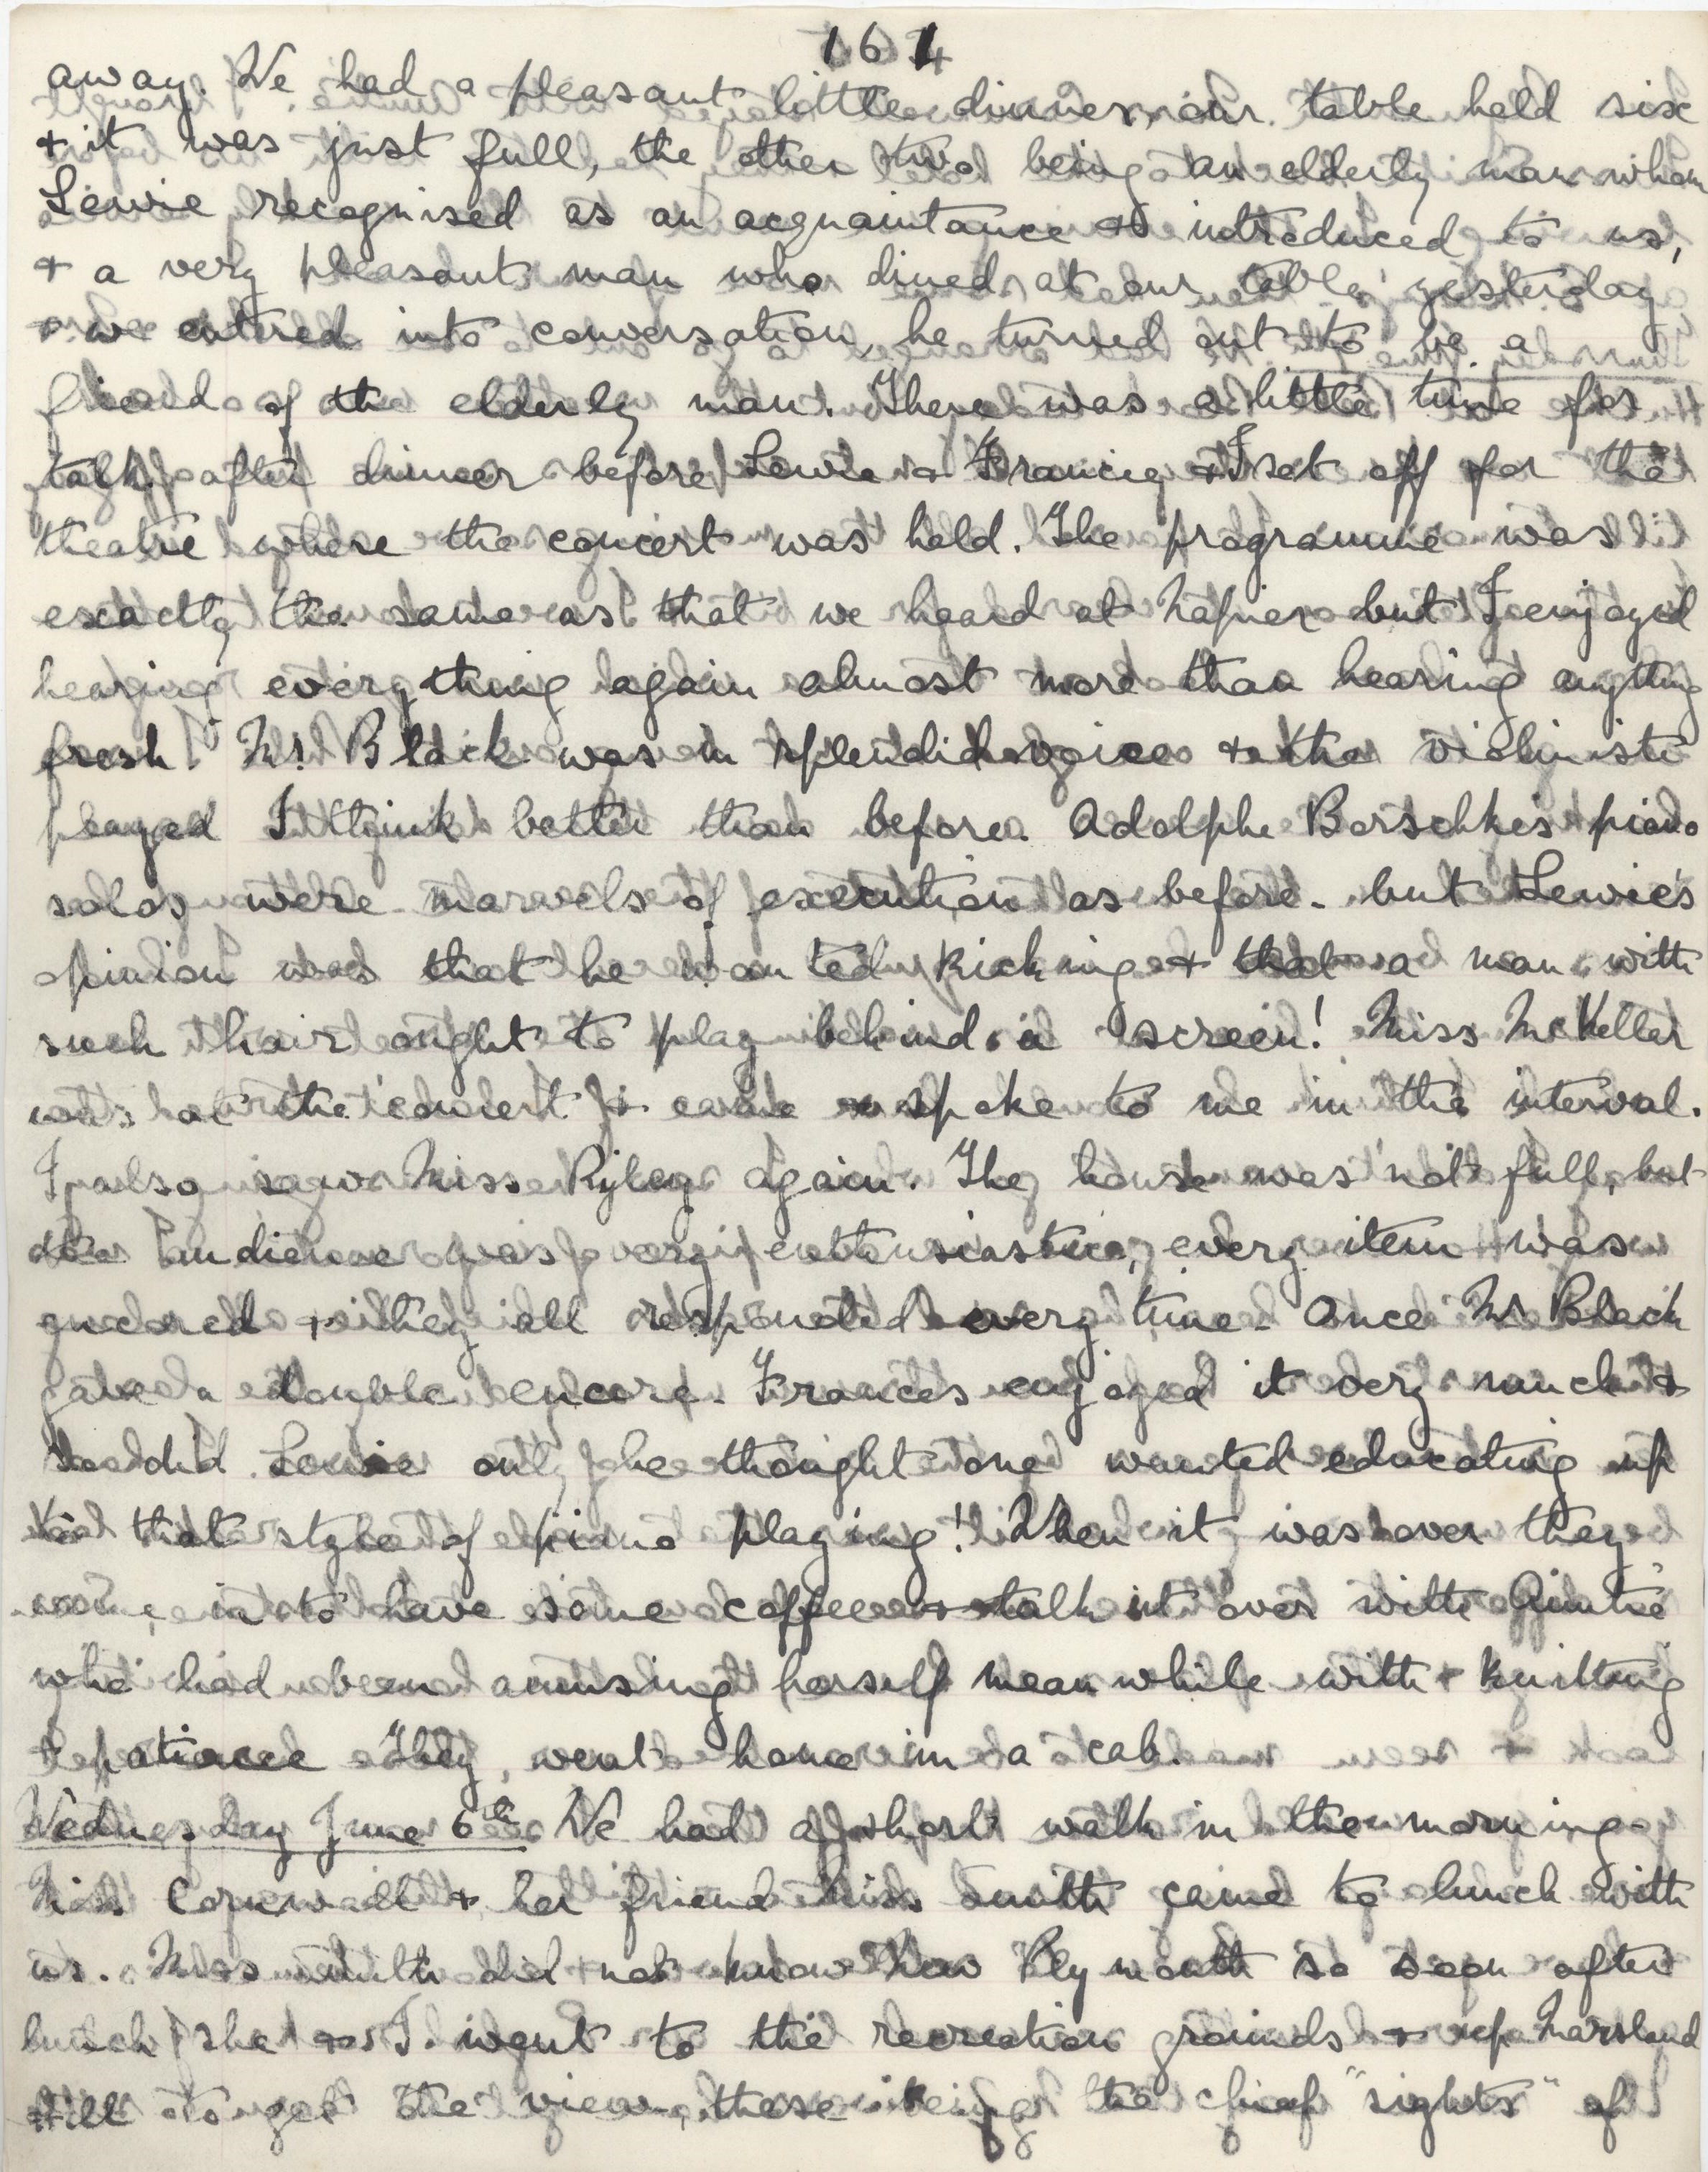 161
away. We had a pleasant little dinner, our table held six
& it was just full, the other two being an elderly man whom
Lewie recognised as an acquaintance & introduced to us,
& a very pleasant man who dined at our table yesterday
& we entered into conversation, he turned out to be a
friend of the elderly man. There was a little time for
talk after dinner before Lewie & Francie & I set off for the
theatre where the concert was held. The programme was
exactly the same as that we heard at Napier but I enjoyed
hearing everything again almost more than hearing anything
fresh. Mr Black was in splendid voice & the violiniste
played I think better than before. Adolphe Borschkes piano
solos were marvels of execution as before - but Lewie's
opinion was that he wanted kicking & that a man with
such hair ought to play behind a screen! Miss McKellar
was at the concert & came & spoke to me in the interval.
I also saw Miss Ryley again. The house was not full, but
the audience was very enthusiastic, every item was
encored & they all responded every time - Once Mr Black
gave a double encore. Frances enjoyed it very much &
so did Lewie only he thought one wanted educating up
to that style of piano playing! When it was over they
came in to have some coffee & talk it over with Auntie
who had been amusing herself meanwhile with knitting
& patience. They went home in a cab.
Wednesday June 6th We had a short walk in the morning -
Miss Cornwall & her friend Miss Smith came to lunch with
us. Miss Smith did not know New Plymouth so soon after
lunch she & I went to the recreation grounds & up Marsland
Hill to get the view, these being the chief "sights" of